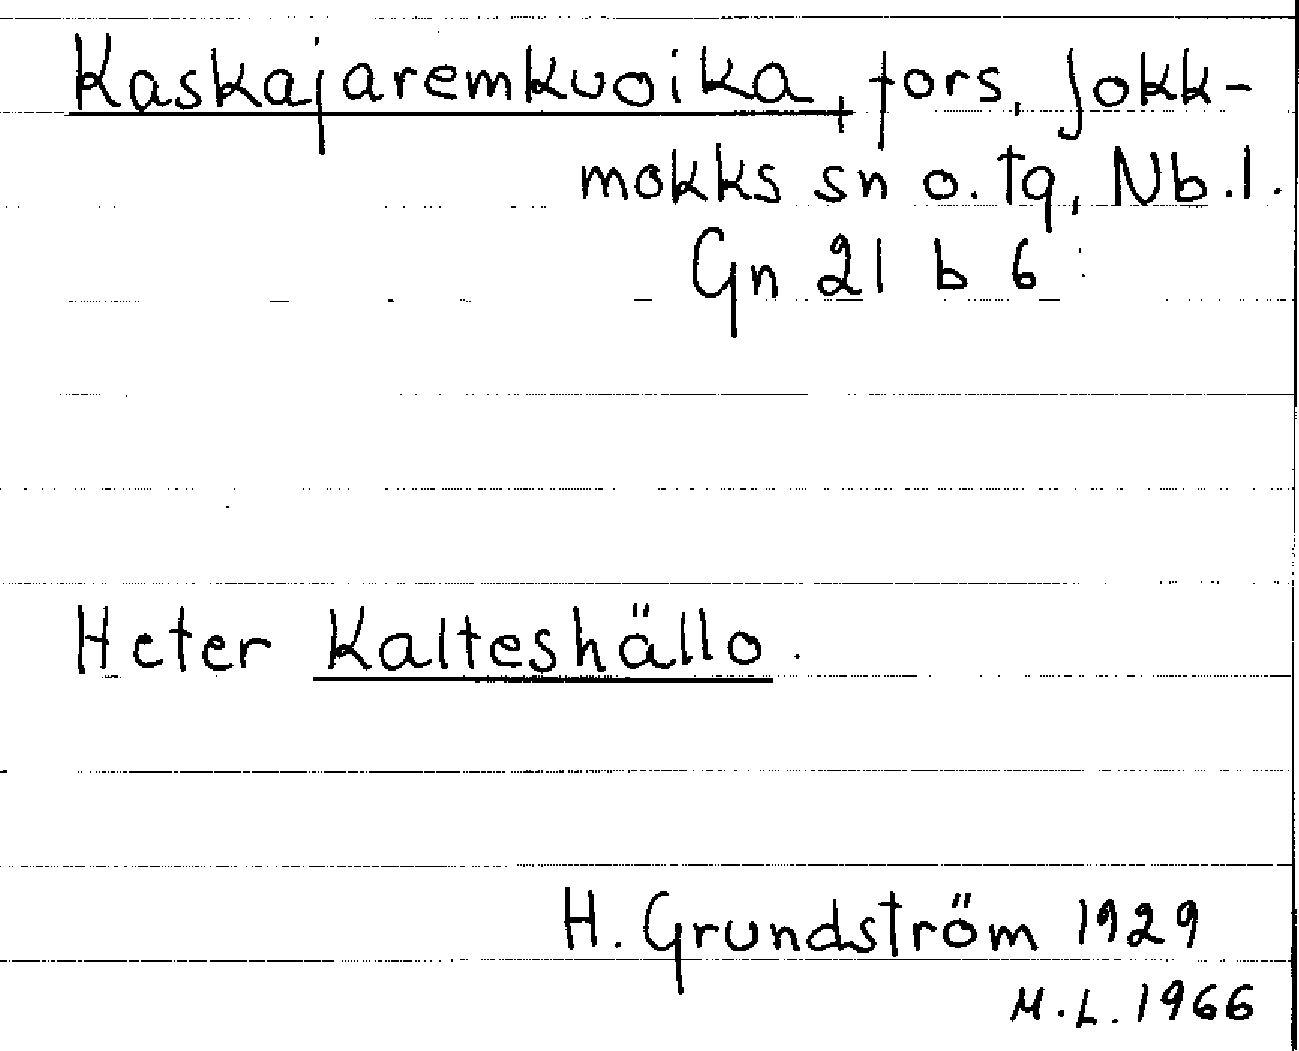 Kaskajaremkuoika, fors, Jokk-
mokks sn o. tg, Nb. l.
Gn 21 b 6
Heter Kalteshällo.
H. Grundström 1929
M.L. 1966